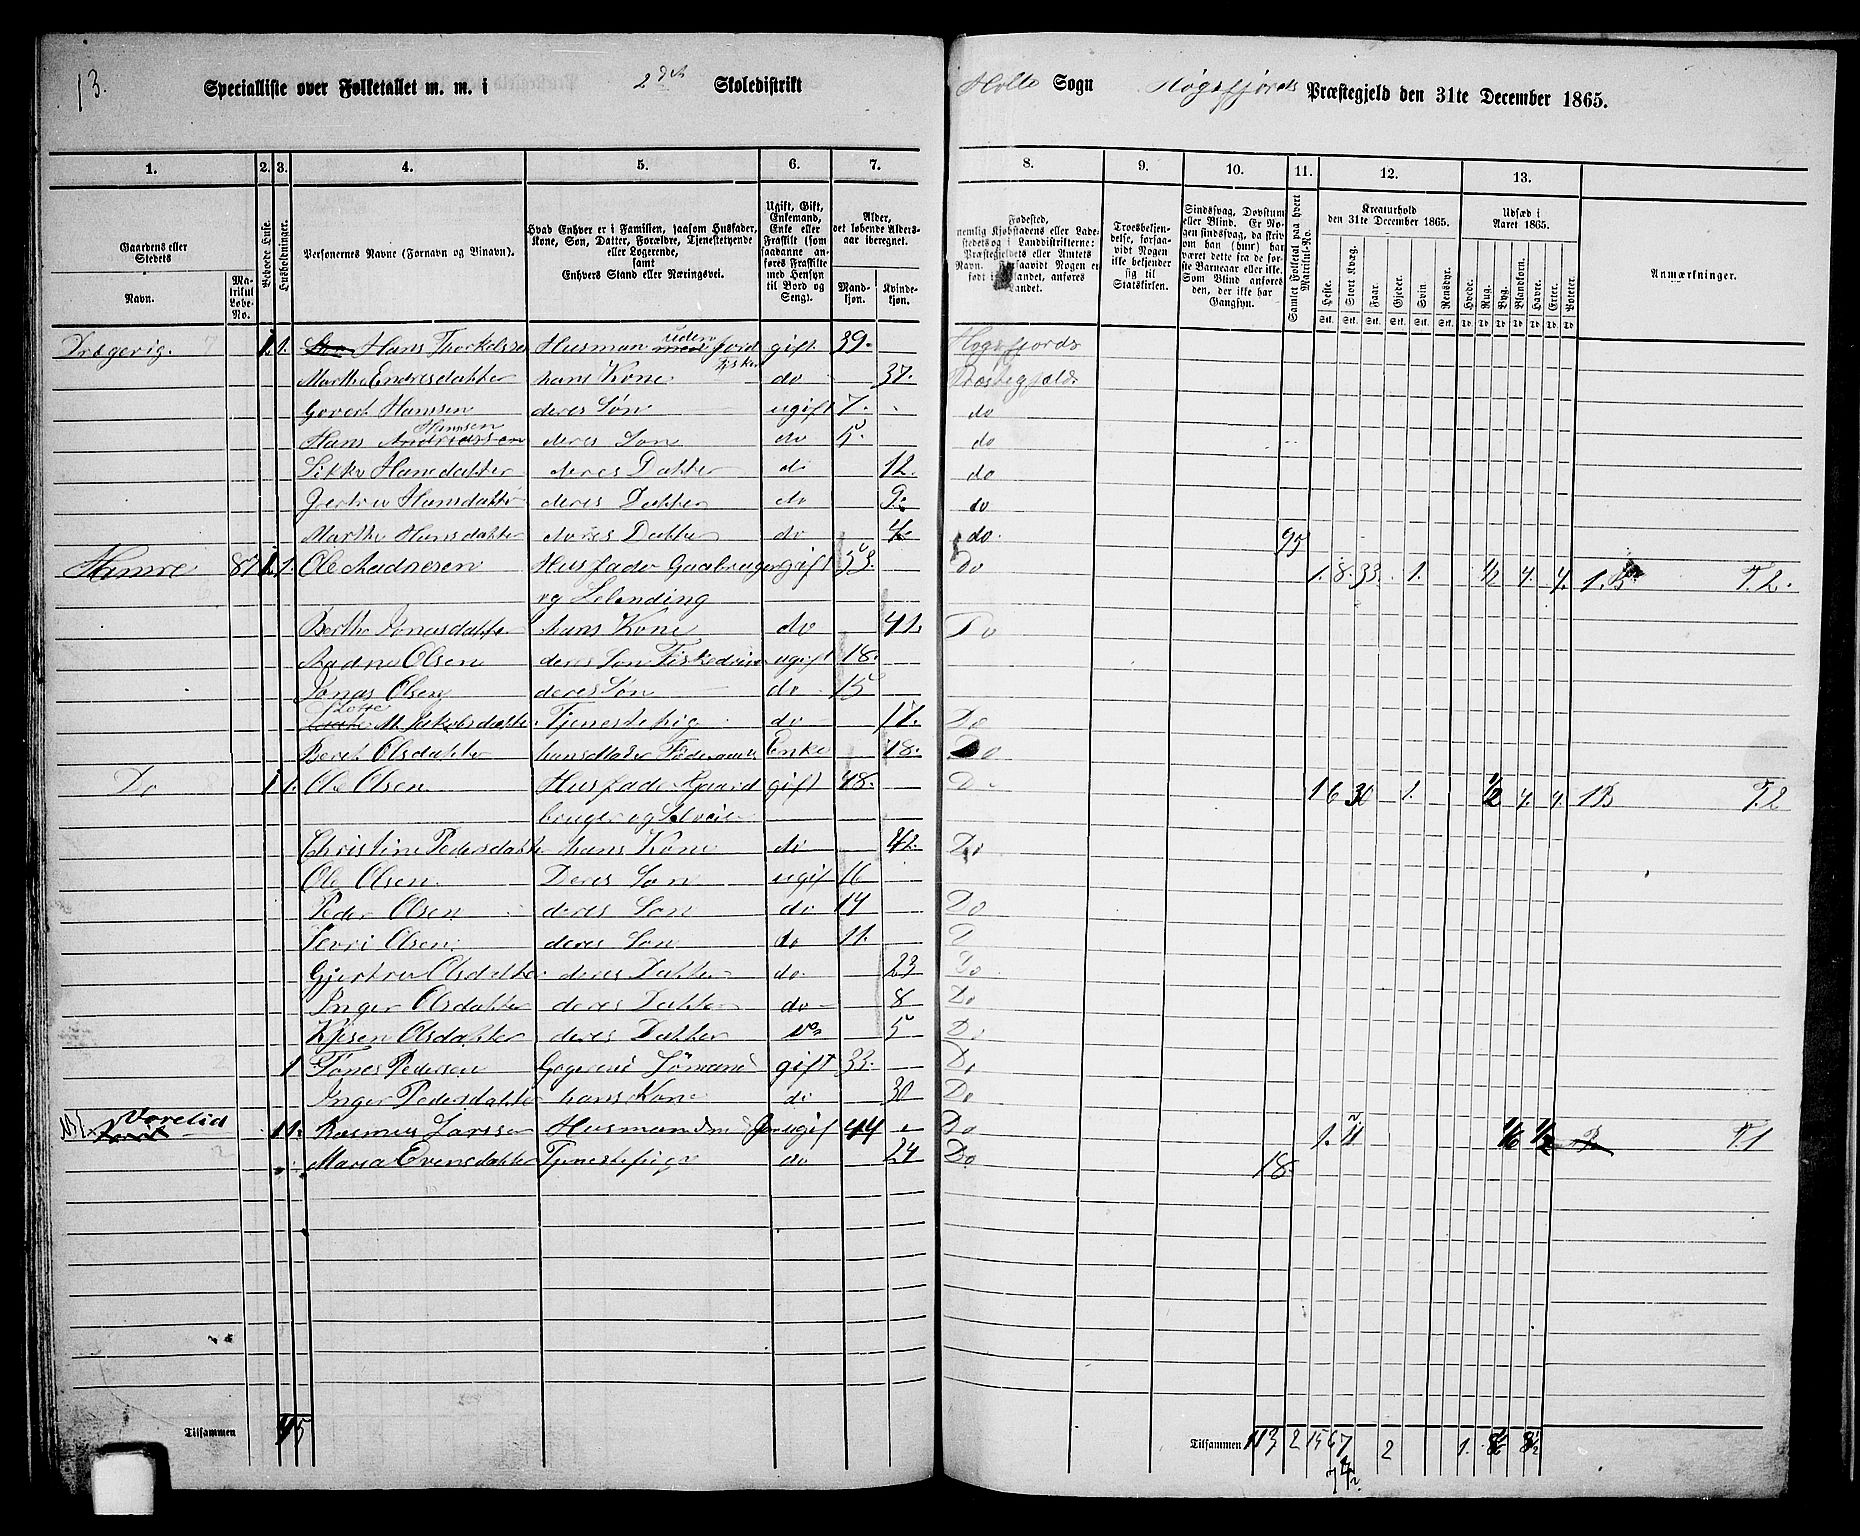 13.
Specialliste over Folketallet m. m. i 2det Skoledistrikt
Holle Sogn Høgsfjords Præstegjeld den 31te December 1865.
1. 2. 3. 4. 5. 6. 7. 8. 9. 10. 11. 12. 13.
Gaardens eller Stedets
Navn.
Matrikul Løbe-No.
Beboede Huse.
Husholdninger.
Personernes Navne (Fornavn og Binavn).
Hvad Enhver er i Familien, saasom Husfader, Kone, Søn, Datter, Forældre, Tjenestetyende eller Logerende, samt Enhvers Stand eller Næringsvei.
Ugift, Gift, Enkemand, Enke eller Fraskilt (som saadanne anføres Fraskilte med Hensyn til Bord og Seng).
Alder, det løbende Aldersaar iberegnet.
Mandkjøn.
Kvindekjøn.
Fødested, nemlig Kjøbstadens eller Ladestedets og i Landdistrikterne: Præstegjeldets eller Amtets Navn. Forsaavidt Nogen er født i Udlandet, anføres Landet.
Troesbekjendelse, forsaavidt Nogen ikke bekjender sig til Statskirken.
Sindssvag, Døvstum eller Blind. Er Nogen sindssvag, da skrives om han (hun) har været dette fra de første Barneaar eller ikke. Som Blind anføres den, der ikke har Gangsyn.
Samlet Folketal paa hvert Matrikul-No.
Kreaturhold den 31te December 1865.
Heste. Stort Kvæg. Faar. Gjeder. Svin. Rensdyr.
Udsæd i Aaret 1865.
Hvede. Rug. Byg. Blandkorn. Havre. Erter. Poteter.
Anmærkninger.
1. 1. Hans Thorkelsen Husman uden Jord Fisker gift 39. Høgsfjords
Martha Endresdatter hans Kone do 37. Præstegjeld
Govert Hansen deres Søn ugift 7. do
Hans Hansen deres Søn do 5. do
Hansdatter deres Datter do 12. do
Hansdatter deres Datter do 9. do
Martha Hansdatter deres Datter do 4 do 95
Hamre 87 1. 1. Ole Aadnesen Husfader Gaardbruger gift 53. Do 1. 8. 33. 1. 1/2 4. 4. 1. B T. 2.
og Leilending
Berthe Jonasdatter hans Kone do 41. Do
Aadne Olsen deres Søn ugift 18.
Jonas Olsen deres Søn do 15
M. Jakobsdatter Tjenestepig do 17. Do
Beret Olsdatter Enke 78. Do
Do 1 1. Ole Olsen Husfader Gaard gift 48. Do 1 6 30 1. 1/2 4. 4. 1 B T. 2
bruger og Selveier
Christine Pedersdatter hans Kone do 42. Do
Ole Olsen Deres Søn ugift 16
Peder Olsen deres Søn do 14 Do
Olsen deres Søn do 11. D
Gjertru Olsdatter deres Datter do 23 Do
Inger Olsdatter deres Datter do 8 Do
Olsdatter deres Datter do 5 Do
1 Tønes Pedersen Logerend Sømand gift 33. Do
Inger Pedersdatter hans Kone do 30 Do
Vorelid 1 1. Rasmus Larssen Husmand ugift 44 Do 1. 1/6 1/2 T. 1
Maria Evensdatter Tjenestepige do 24 Do 18.
Tilsammen 4 5
Tilsammen 113 2 15 67 2 1. 8 1/6 8 1/2